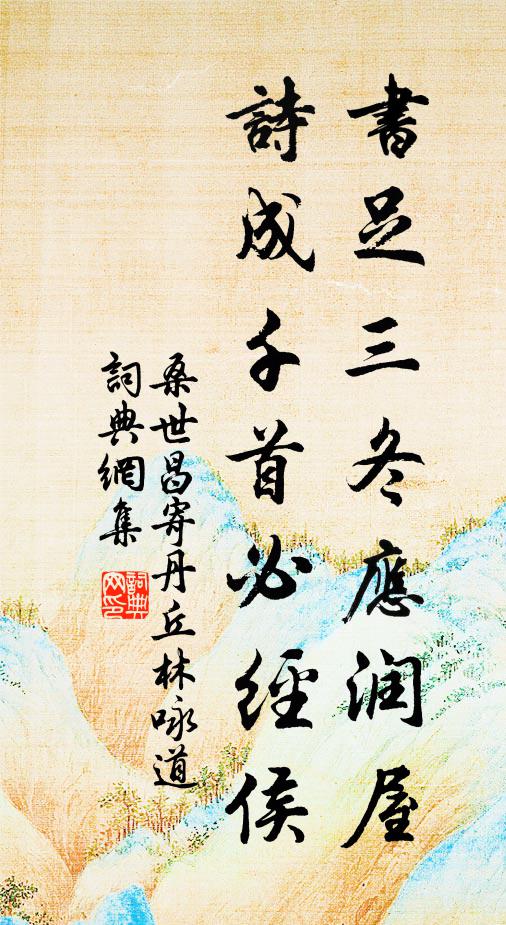 書足三冬應润屋
詩成千首必經侯
桑世昌寄丹丘林咏道
詞典網集
詞典
网印